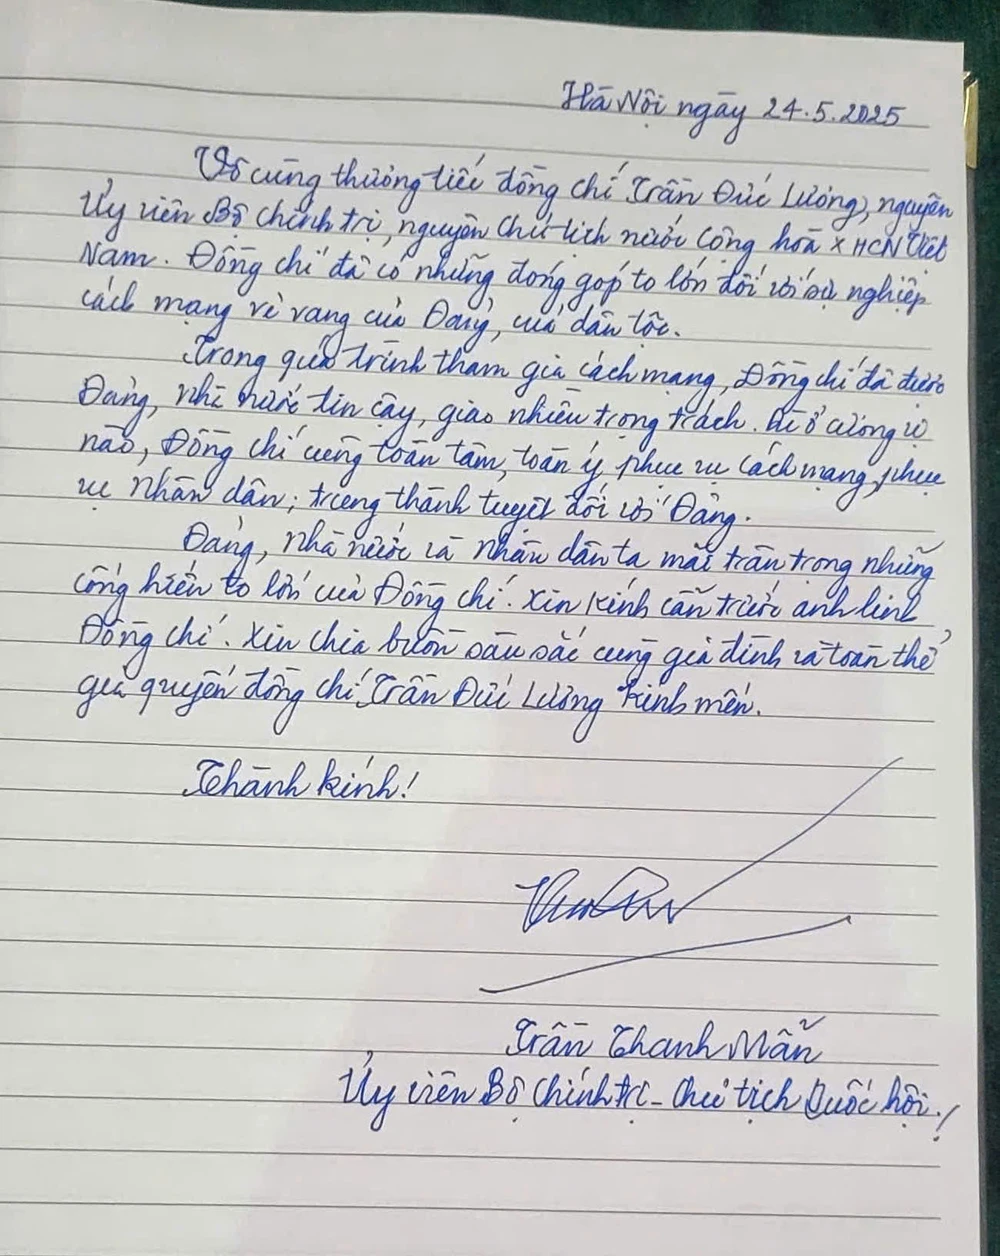 Hà Nội ngày 24.5.2025
Vô cùng thương tiếc đồng chí Trần Đức Lương, nguyên
Ủy viên Bộ chính trị, nguyên Chủ tịch nước Cộng hoà XHCN Việt
Nam. Đồng chí đã có những đóng góp to lớn đối với sự nghiệp
cách mạng vẻ vang của Đảng, của dân tộc.
Trong quá trình tham gia cách mạng, Đồng chí đã được
Đảng, Nhà nước tin cậy, giao nhiều trọng trách. Dù ở cương vị
nào, Đồng chí cũng toàn tâm, toàn ý phục vụ cách mạng, phục
vụ nhân dân; trung thành tuyệt đối với Đảng.
Đảng, Nhà nước và nhân dân ta mãi trân trọng những
cống hiến to lớn của Đồng chí. Xin kính cẩn trước anh linh
Đồng chí. Xin chia buồn sâu sắc cùng gia đình và toàn thể
gia quyến đồng chí Trần Đức Lương kính mến.
Thành kính!
Trần Thanh Mẫn
Ủy viên Bộ Chính trị - Chủ tịch Quốc hội!